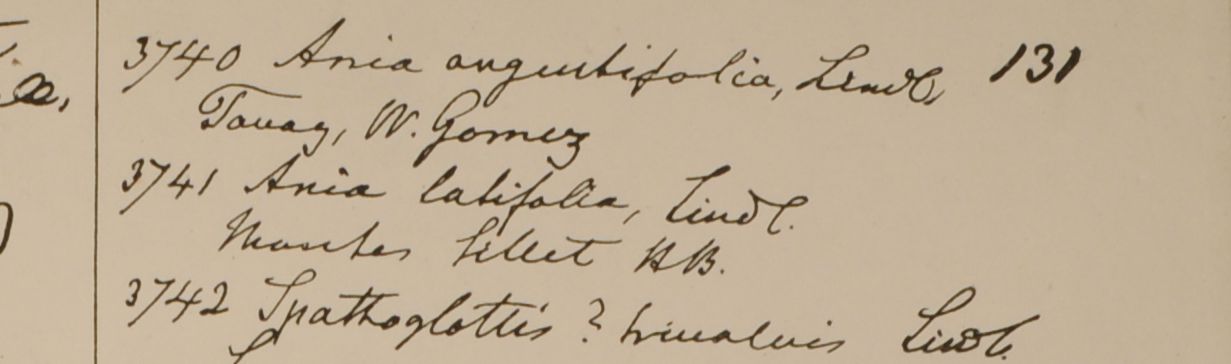 3740 Ania angustifolia, Lindl, 131
Tavay, W. Gomez
3741 Ania latifolia, Lindl.
Montes Sillet H.B.
3742 Spathoglottis? trivalvis Lindl.